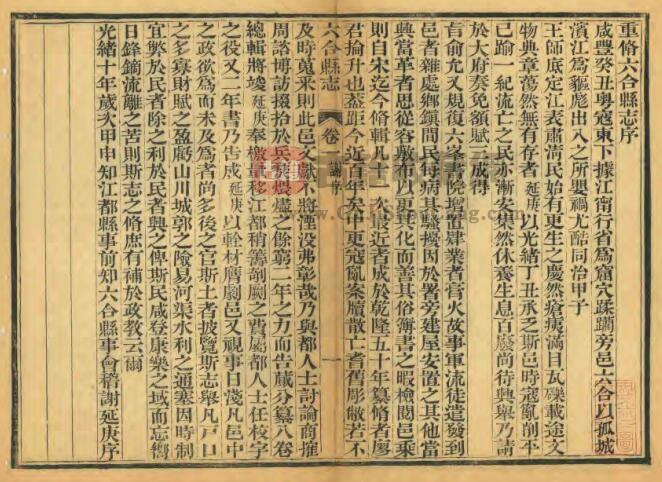 重脩六合縣志序
咸豐癸丑粵寇東下據江甯行省爲窟穴蹂躪旁邑六合以孤城
濱江爲豼彪出入之所嬰禍尤酷同治甲子
王師底定江表肅淸民始有更生之慶然瘡痍滿目瓦礫載途文
物典章蕩然無有存者延庚以光緒丁丑承乏斯邑時寇亂削平
已踰一紀流亡之民亦漸安集然休養生息百廢尚待興舉乃請
於大府奏免額賦二成得
旨俞允又規復六峯書院增置肄業者膏火故事軍流徒遣發到
邑者雜處鄉鎭間民每病其騷擾因於署旁建屋安置之其他當
興當革者思從容敷布以更其化而善其俗簿書之暇檢閱邑乘
則自宋迄今脩輯凡十一次最近者成於乾隆五十年纂脩者廖
君掄升也蓋距今近百年矣中更寇亂案牘散亡耆舊彫敝若不
六合縣志 卷一 謝序 一
及時蒐采則此邑文獻不將湮沒弗彰哉乃與都人士討論商搉
周諮博訪掇拾於兵燹煨燼之餘窮二年之力而告蕆分纂八卷
總輯將竣延庚奉檄量移江都稍籌剞劂之費屬都人士任校字
之役又二年書乃告成延庚以幹材膺劇邑又視事日淺凡邑中
之政欲爲而未及爲者尚多後之官斯土者披覽斯志舉凡戸口
之多寡財賦之盈虧山川城郭之險易河渠水利之通塞因時制
宜弊於民者除之利於民者興之俾斯民咸登康樂之域而忘嚮
日鋒鏑流離之苦則斯志之脩庶有補於政敎云爾
光緒十年歲次甲申知江都縣事前知六合縣事會稽謝延庚序